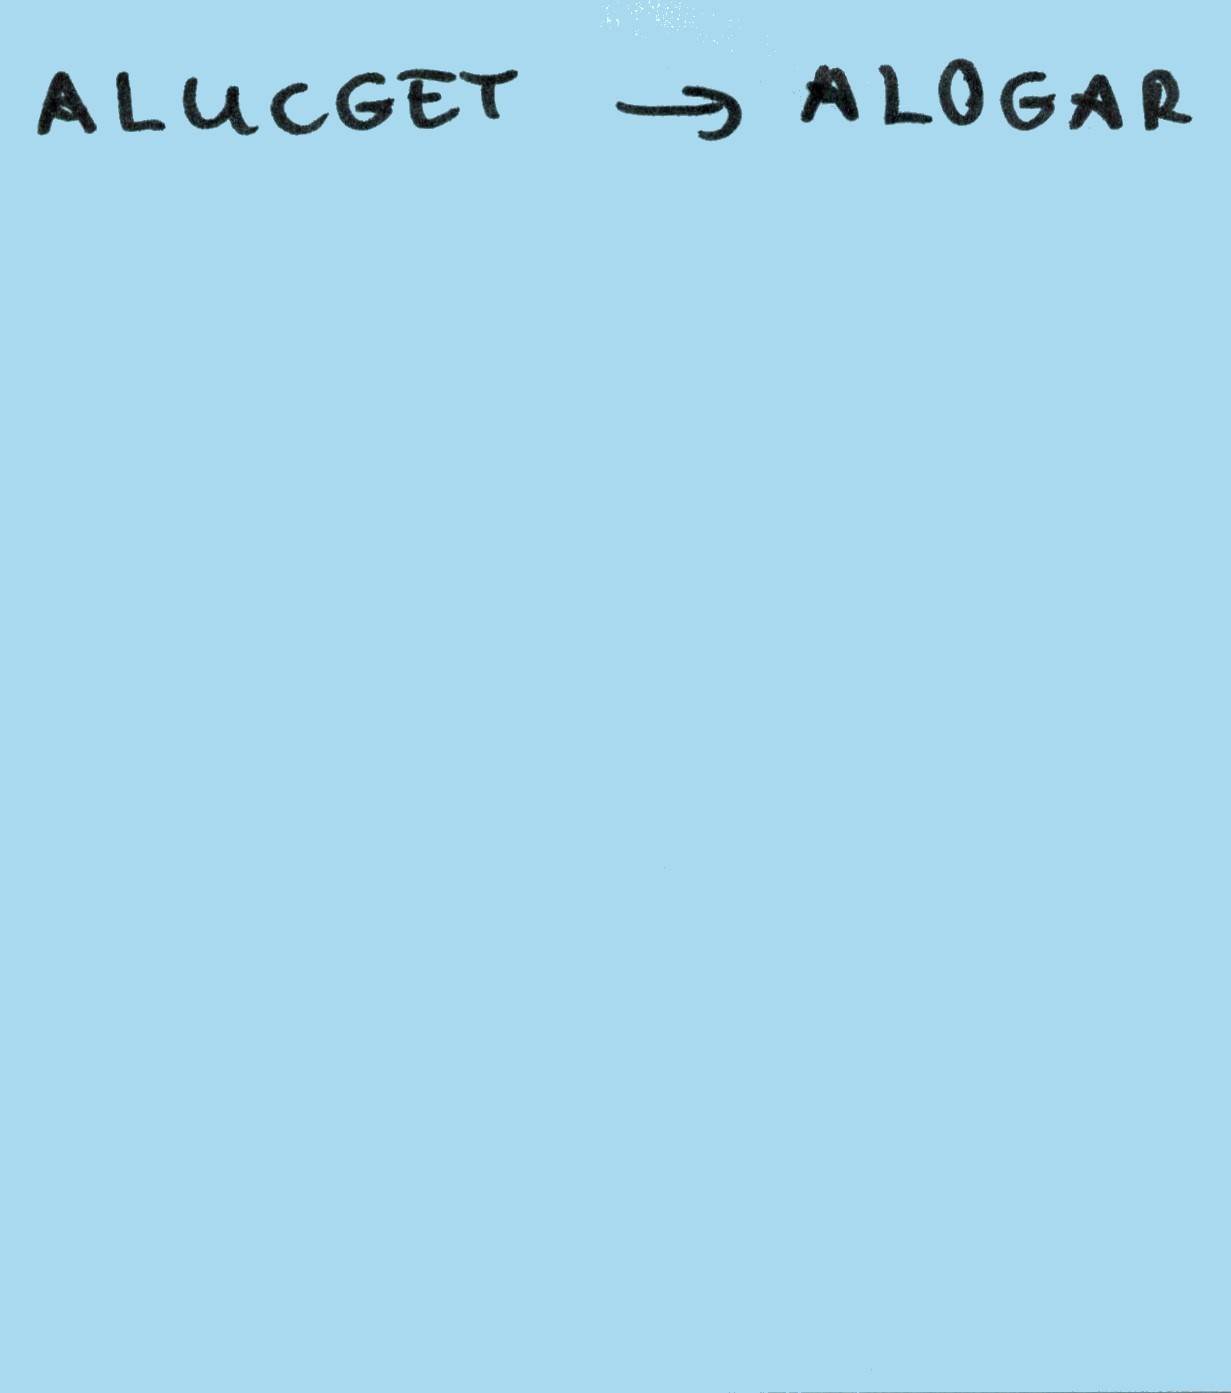 ALUCGET → ALOGAR